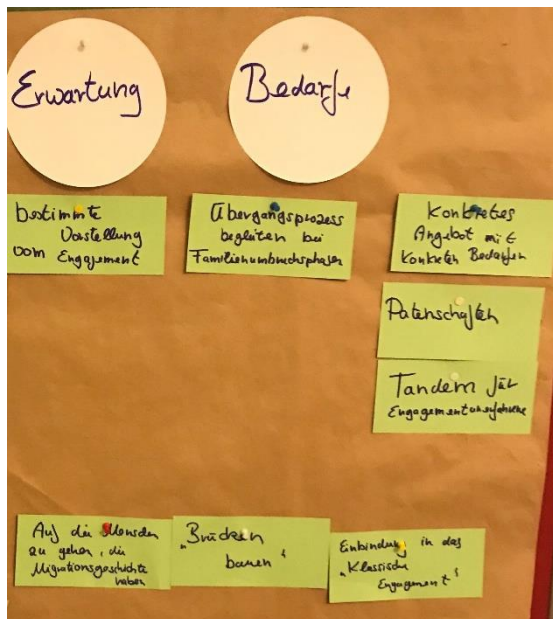 Erwartung
Bedarfe
bestimmte
Vorstellung
vom Engagement
Übergangsprozess
begleiten bei
Familienumbruchsphasen
Konkretes
Angebot mit
konkreten Bedarfen
Patenschaften
Tandem für
Engagementunerfahrene
Auf die Menschen
zu gehen, die
Migrationsgeschichte
haben
„Brücken
bauen“
Einbindung in das
„Klassische
Engagement“